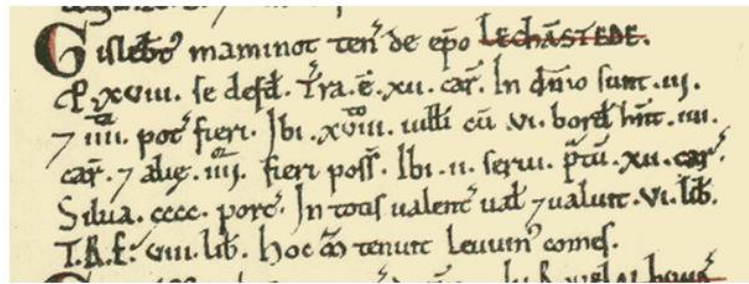 Gislebt' maminot ten' de ep̄o LECHĀSTEDE.
P. xviii. se defd'. T'ra. ē. xii. car̄. In dn̄io sunt. iij.
⁊ iiii.ᵗᵃ pot' fieri. Ibi. xviii.ᵗᵒ uill̄i cū. vi. bord' hn̄t. iiii.
car̄. ⁊ alię. iiij.ᵒʳ fieri poss̄. Ibi. ii. serui. p̄tū. xii. car'.
Silua. cccc. porc'. In totis ualent' ual' ⁊ ualuit. vi. lib̄.
T.R.E.' viii. lib̄. hoc m̄ tenuit Leuuin' comes.